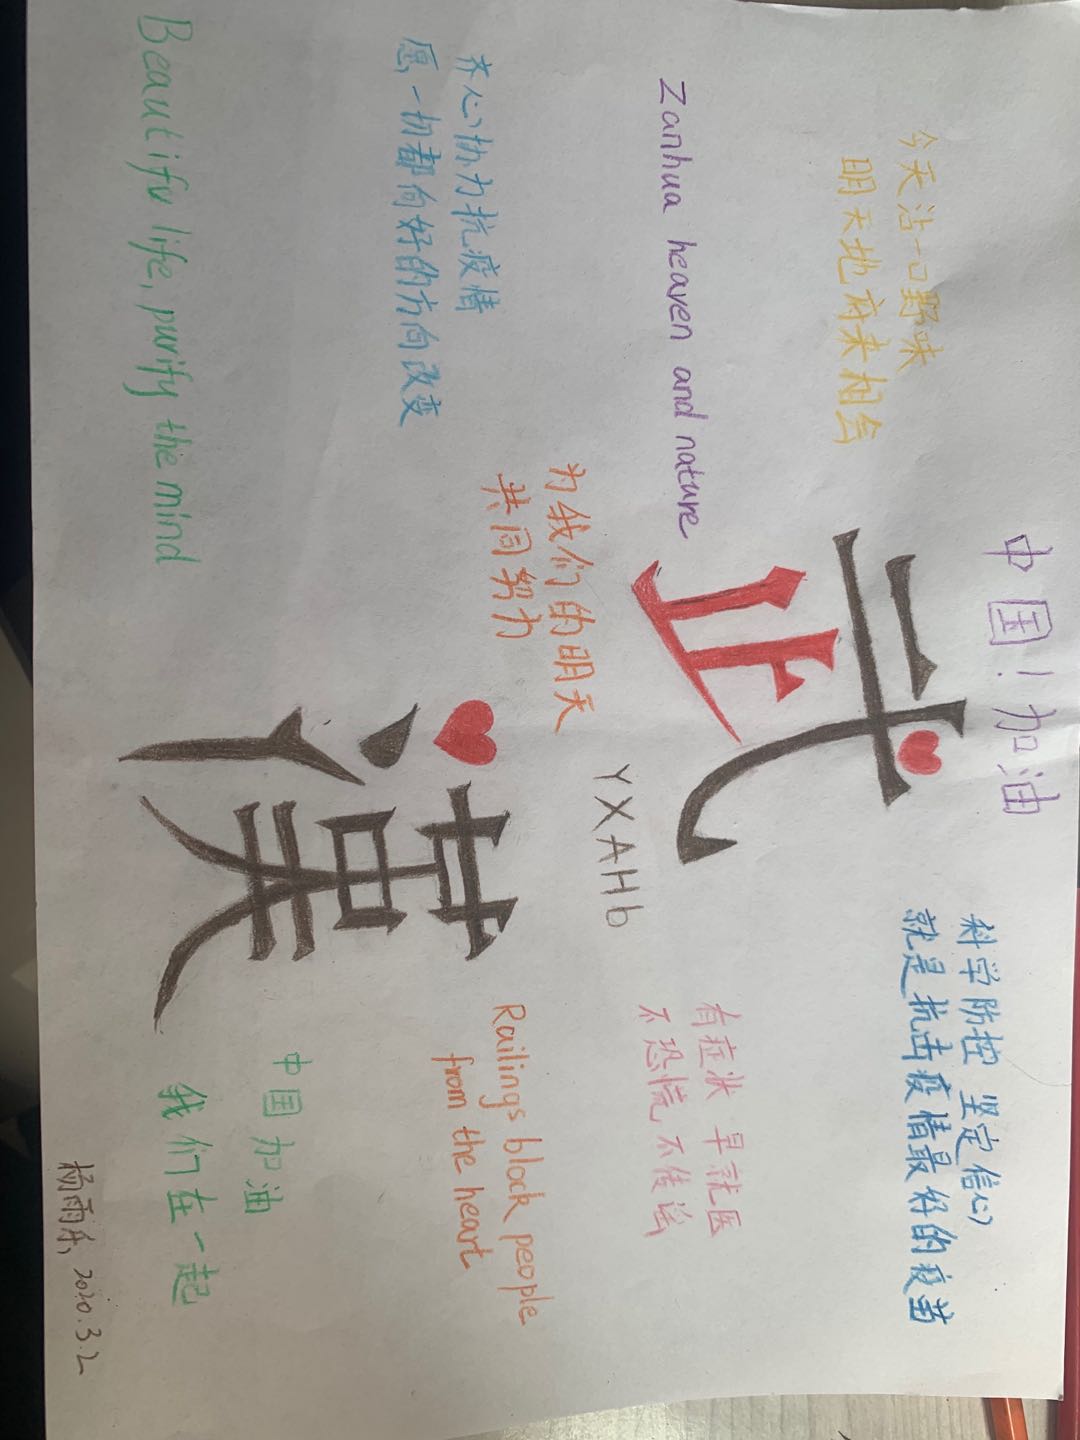 中国!加油
今天沾一口野味
明天地府来相会
科学防控 坚定信心
就是抗击疫情最好的疫苗
武
Zanhua heaven and nature
有症状 早就医
不恐慌 不传谣
YXAHb
为我们的明天
共同努力
齐心协力抗疫情
愿,一切都向好的方向改变
漢
Railings block people
from the heart
中国加油
我们在一起
Beautifu life, purify the mind
杨雨乐, 2020.3.2